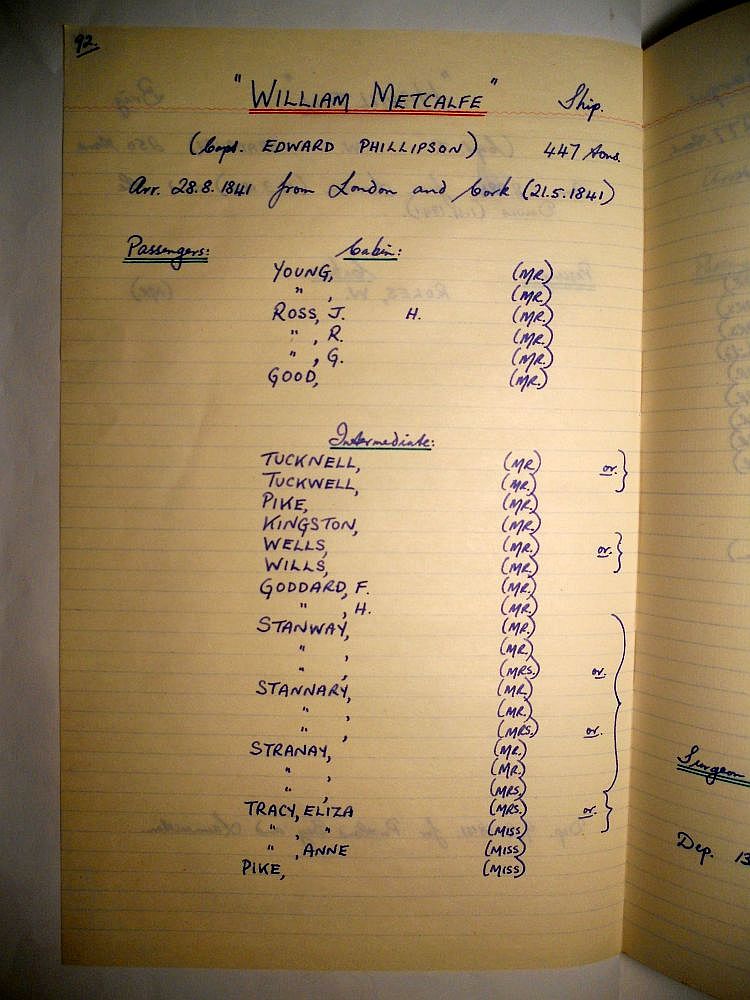 92.
"WILLIAM METCALFE" Ship.
(Capt. EDWARD PHILLIPSON) 447 tons.
Arr. 28.8.1841 from London and Cork (21.5.1841)
Passengers: Cabin:
YOUNG, (MR.)
" , (MR.)
ROSS, J. H. (MR.)
" , R. (MR.)
" , G. (MR.)
GOOD, (MR.)
Intermediate:
TUCKNELL, (MR.) or.
TUCKWELL, (MR.)
PIKE, (MR.)
KINGSTON, (MR.)
WELLS, (MR.) or.
WILLS, (MR.)
GODDARD, F. (MR.)
" , H. (MR.)
STANWAY, (MR.)
" , (MR.)
" , (MRS.) or.
STANNARY, (MR.)
" , (MR.)
" , (MRS.) or.
STRANAY, (MR.)
" , (MR.)
" , (MRS.)
TRACY, ELIZA (MRS.) or.
" , " (MISS)
" , ANNE (MISS)
PIKE, (MISS)
Surgeon
Dep. 13